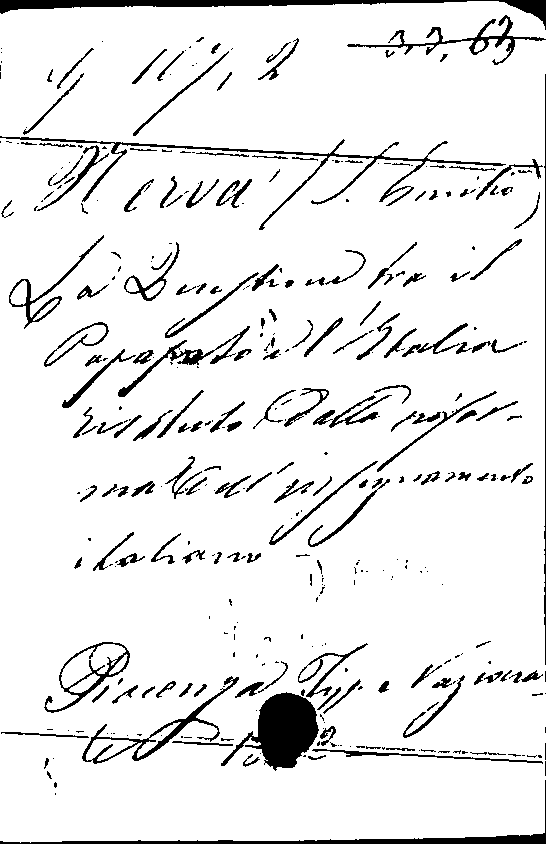 167, 2 33, 63
Nerva (S. Emilio)
La Questione tra il
Papato e l'Italia
risoluto dalla rifor-
ma dell'insegnamento
italiano
Piacenza Tip. Naziona-
le